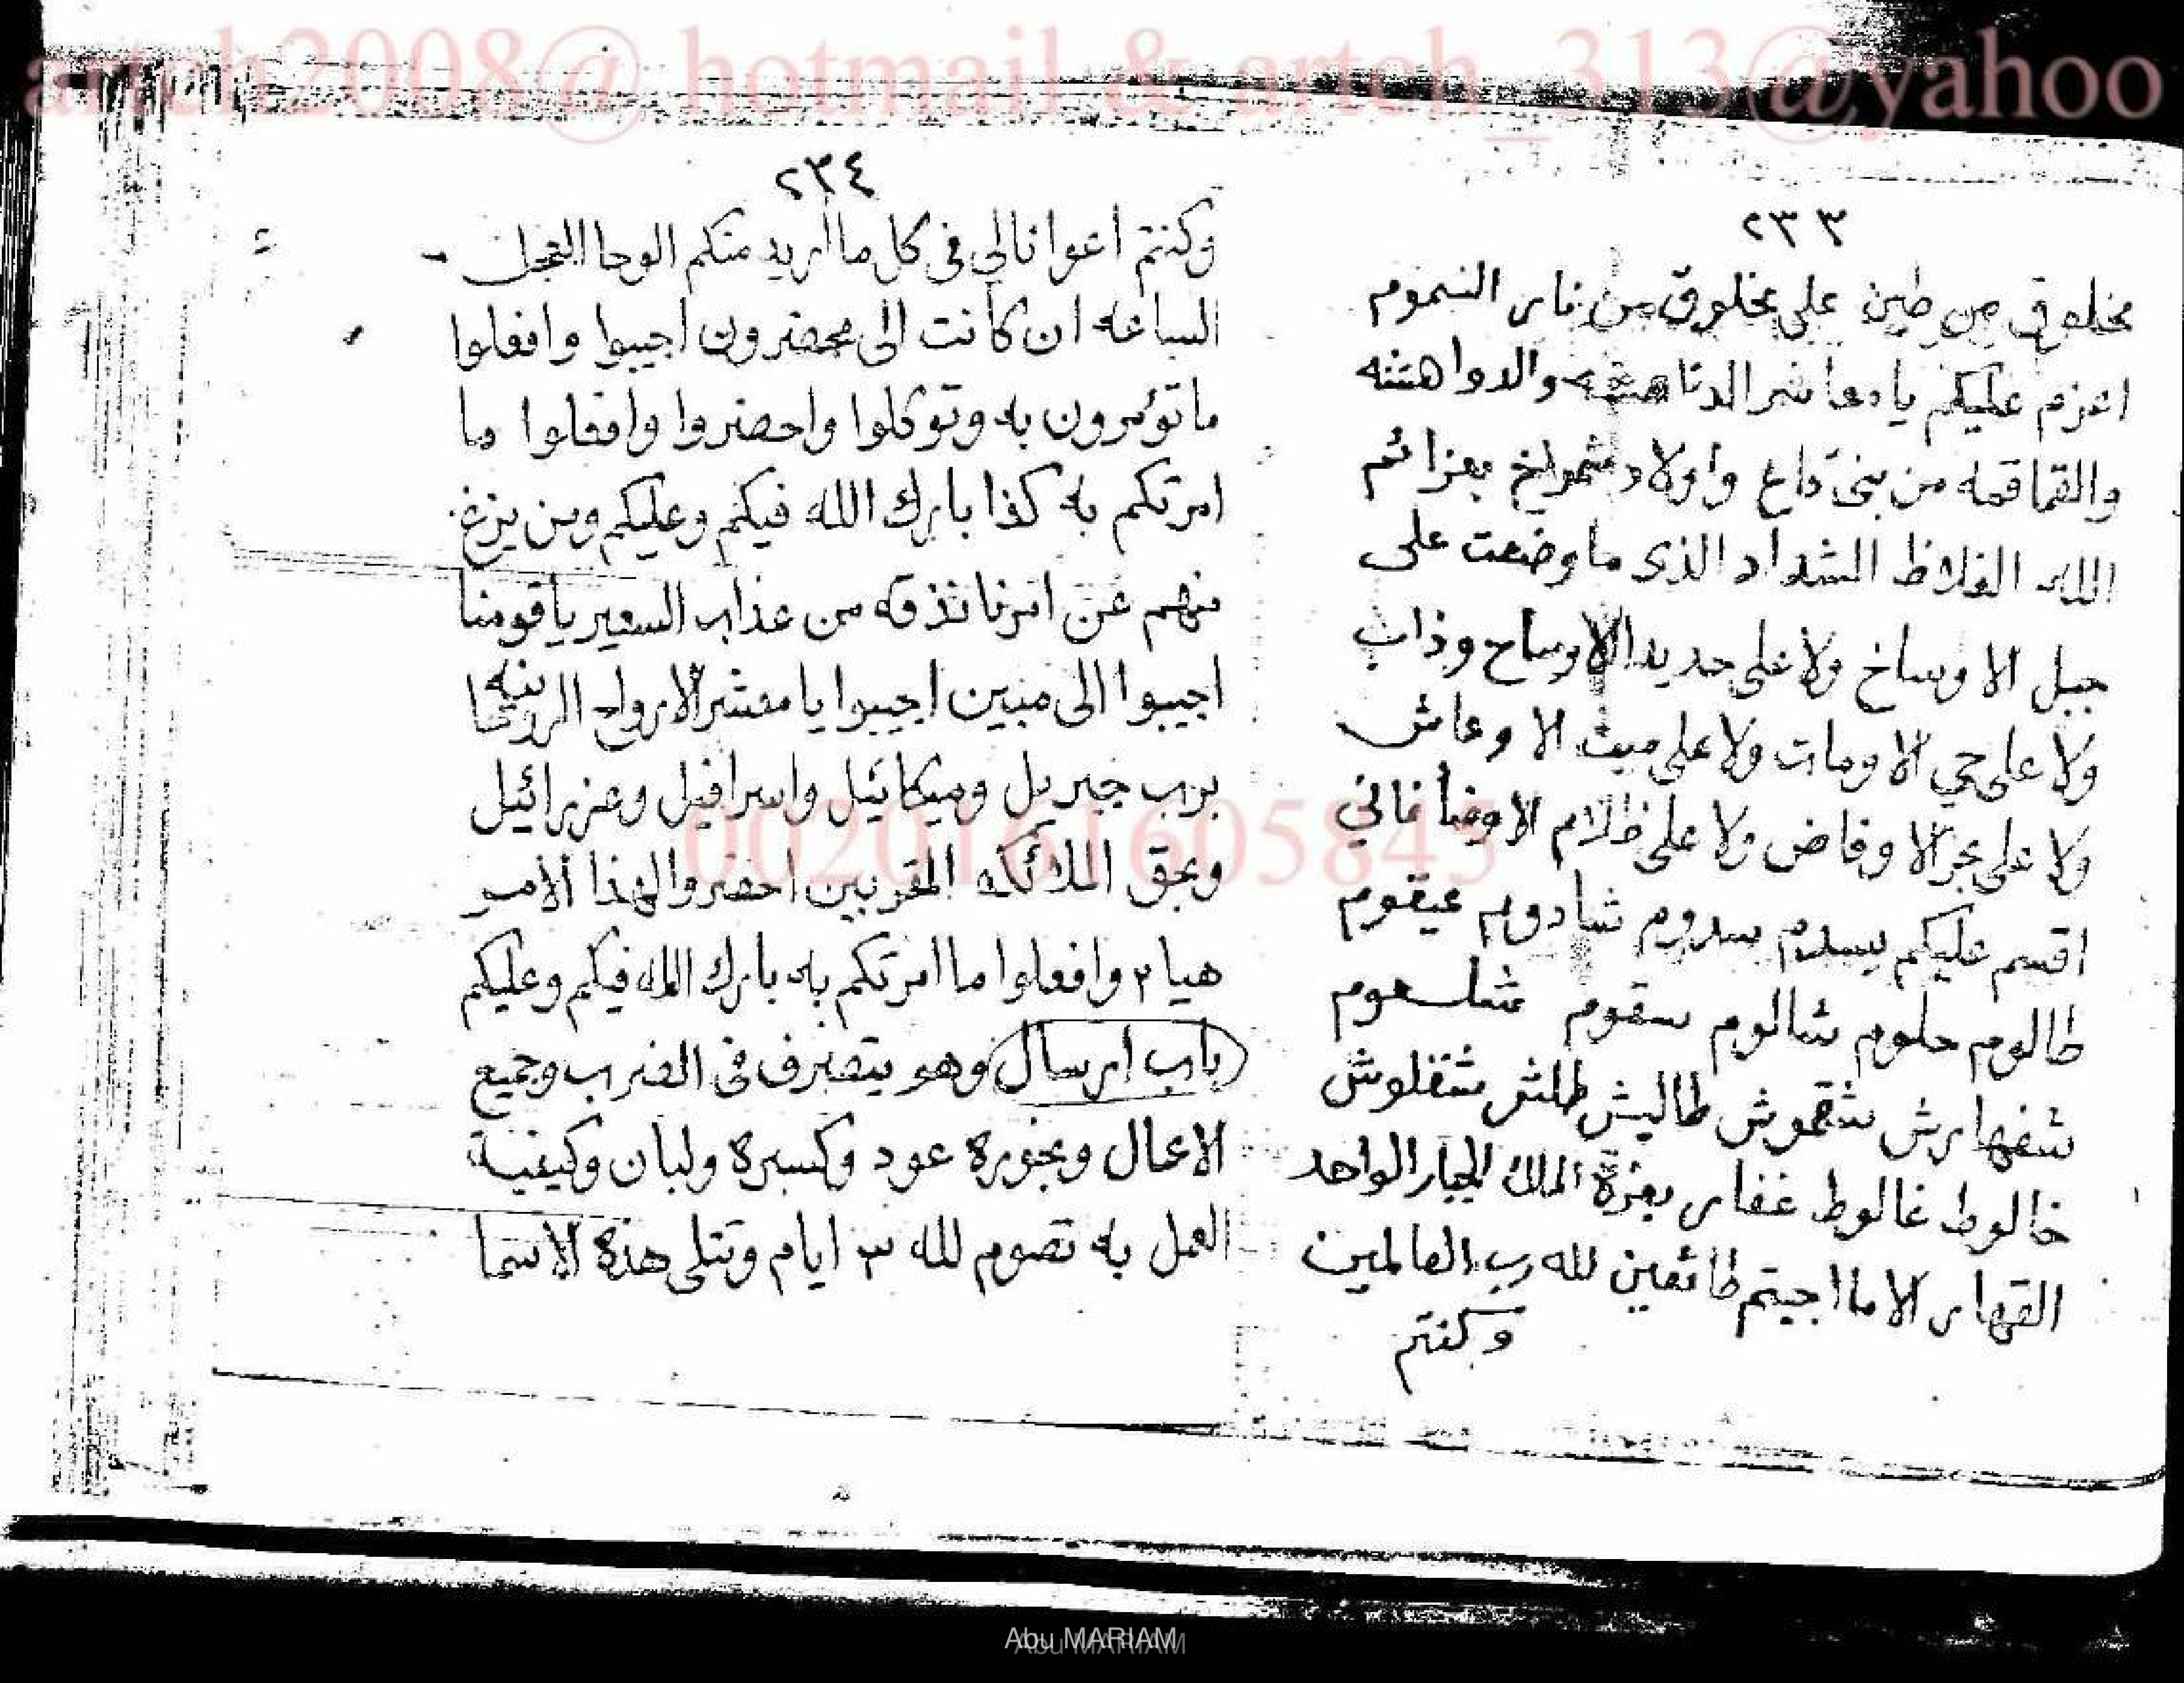 artch2008@ hotmail & artch_313@yahoo
٢٣٣
مخلوق من طين على مخلوق من نار السموم
اعزم عليكم يا معاشر الدناهشه والدواهشه
والقماقمه من بنى داع واولاد شمراخ بعزائم
الله الغلاظ الشداد الذى ما وضعت على
جبل الا وساخ ولا على حديد الا وساح وذاب
ولا على حي الا ومات ولا على ميت الا وعاش
ولا على بحر الا وفاض ولا على ظلام الا وضأ فاني
اقسم عليكم بيسدم بسدروم شادوم عيقوم
طالوم حلوم شالوم سقوم شلسعوم
شفهارش شقموش طاليش طلش شقلوش
خالوط غالوط غفار بعزة الملك الجبار الواحد
القهار الا ما اجبتم طائعين لله رب العالمين
وكنتم
٢٣٤
وكنتم اعوانا لي فى كل ما اريد منكم الوحا العجل
الساعه ان كانت الى محضرون اجيبوا وافعلوا
ما تؤمرون به وتوكلوا واحضروا وافعلوا ما
امرتكم به كذا بارك الله فيكم وعليكم ومن يزغ
منهم عن امرنا نذقه من عذاب السعير يا قومنا
اجيبوا الى مبين اجيبوا يا معشر الارواح الروحانيه
برب جبريل وميكائيل واسرافيل وعزرائيل
وبحق الملائكه المقربين احضروا لهذا الامر
هيا ٢ وافعلوا ما امرتكم به بارك الله فيكم وعليكم
باب ارسال وهو يتصرف فى الضرب وجميع
الاعمال وبخوره عود وكسبره ولبان وكيفية
العمل به تصوم لله ٣ ايام وتتلى هذه الاسما
0020161605845
Abu MARIAM